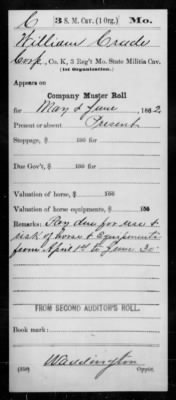 C 3 S. M. Cav. (1 Org.) Mo.
William Crade
Corp., Co. K, 3 Reg't Mo. State Militia Cav.
(1st Organization.)
Appears on
Company Muster Roll
for May & June, 1862.
Present or absent Present
Stoppage, $ 100 for
Due Gov't, $ 100 for
Valuation of horse, $ 100
Valuation of horse equipments, $ 100
Remarks: Pay due for use &
risk of horse & Equipments
from April 1st to June 30
FROM SECOND AUDITOR'S ROLL.
Book mark:
Waddington
(359) Copyist.